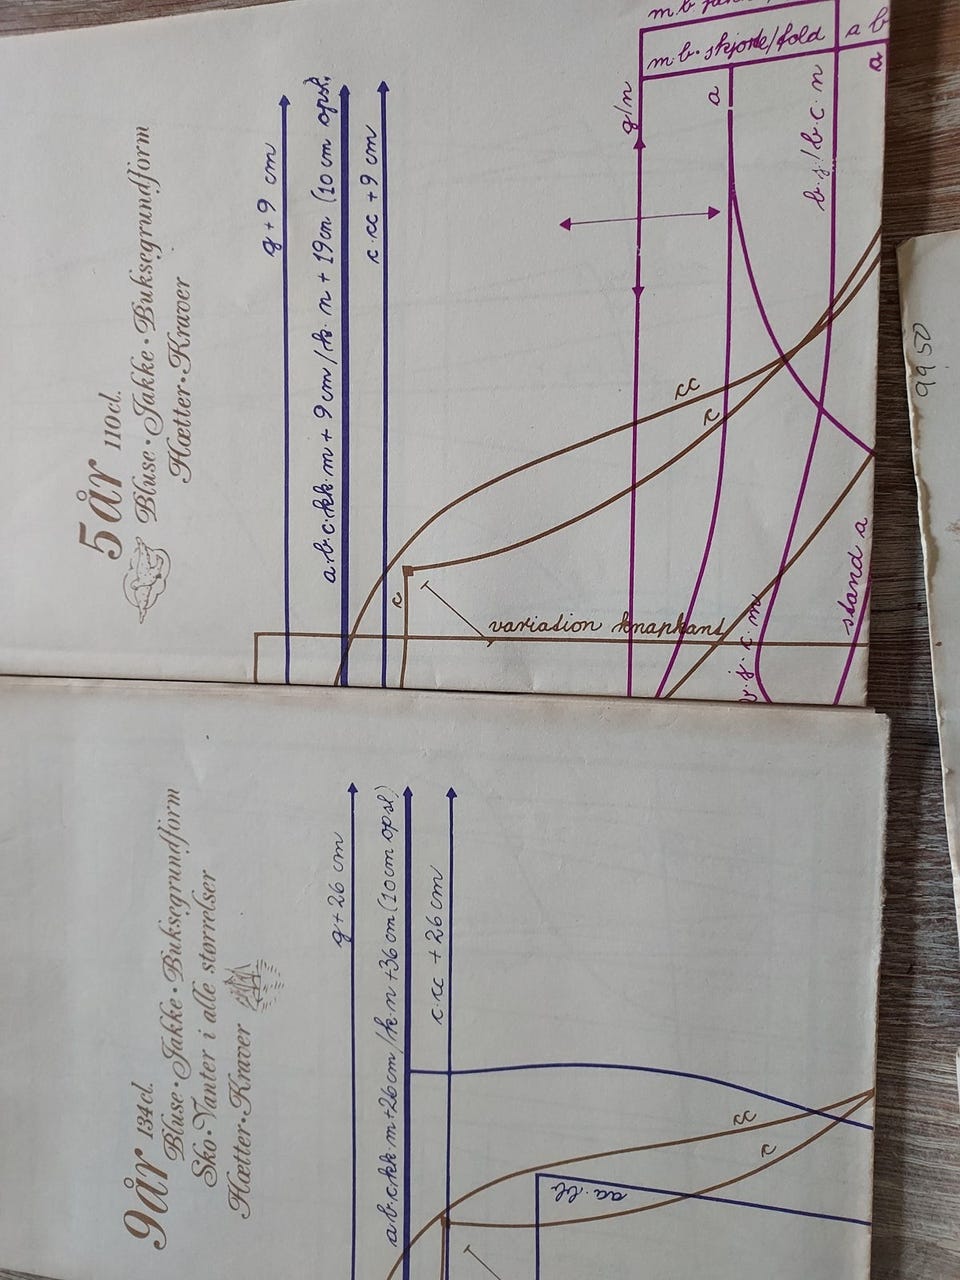 5 år 110 cl.
Bluse • Jakke • Buksegrundform
Hætter • Kraver
g + 9 cm
a.b.c.kk.m + 9 cm / k.n + 19 cm (10 cm opsl.
c.cc + 9 cm
cc
c
c
variation knapkant
g/n
m.b.
m.b. skjorte/fold
a b
a
a
b.s./b.c.n
stand a
9 år 134 cl.
Bluse • Jakke • Buksegrundform
Sko • Vanter i alle størrelser
Hætter • Kraver
g + 26 cm
a.b.c.kk.m + 26 cm / k.n + 36 cm (10 cm opsl.)
c.cc + 26 cm
cc
c
aa.bb
99 50